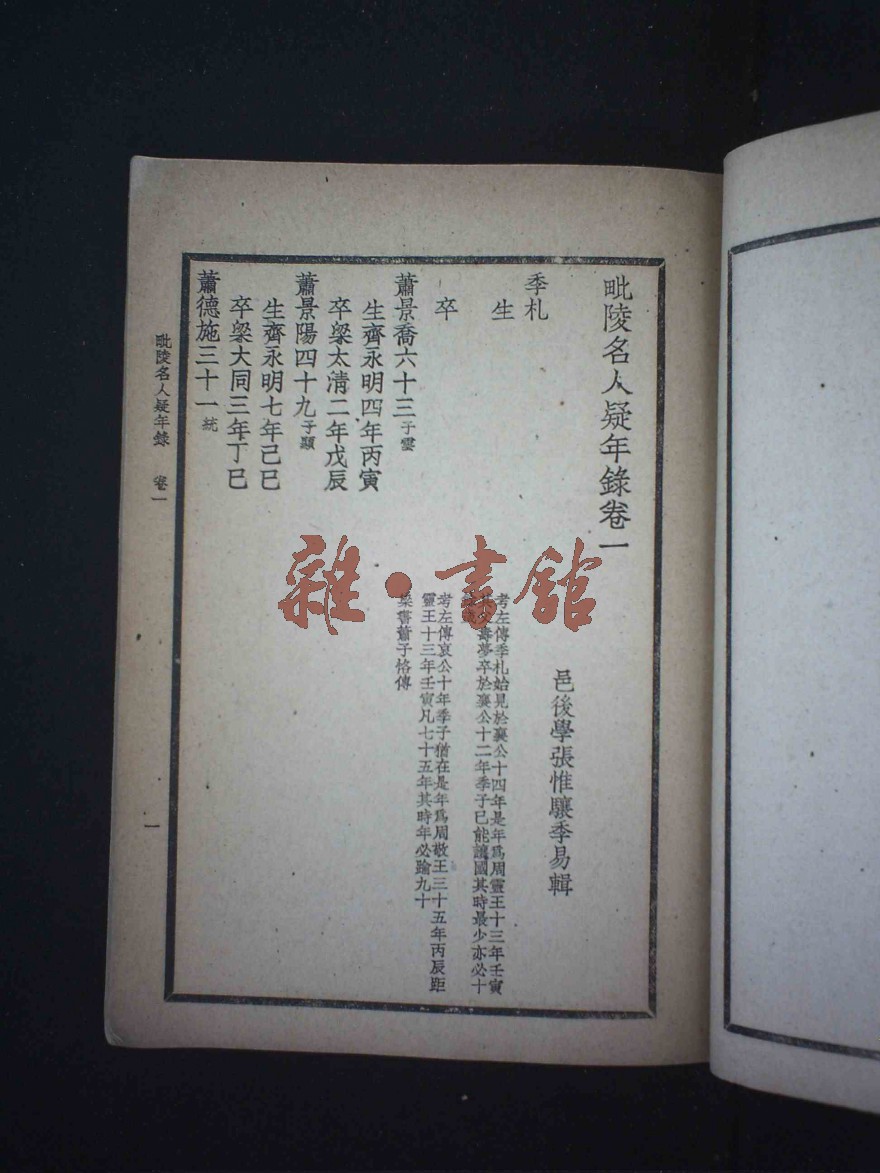 毗陵名人疑年錄卷一
邑後學張惟驤季易輯
季札
生
考左傳季札始見於襄公十四年是年爲周靈王十三年壬寅
壽夢卒於襄公十二年季子已能讓國其時最少亦必十
卒
考左傳哀公十年季子猶在是年爲周敬王三十五年丙辰距
靈王十三年壬寅凡七十五年其時年必踰九十
蕭景喬六十三子雲
梁書蕭子恪傳
生齊永明四年丙寅
卒梁太清二年戊辰
蕭景陽四十九子顯
生齊永明七年己巳
卒梁大同三年丁巳
蕭德施三十一統
毗陵名人疑年錄 卷一
一
雜·書館